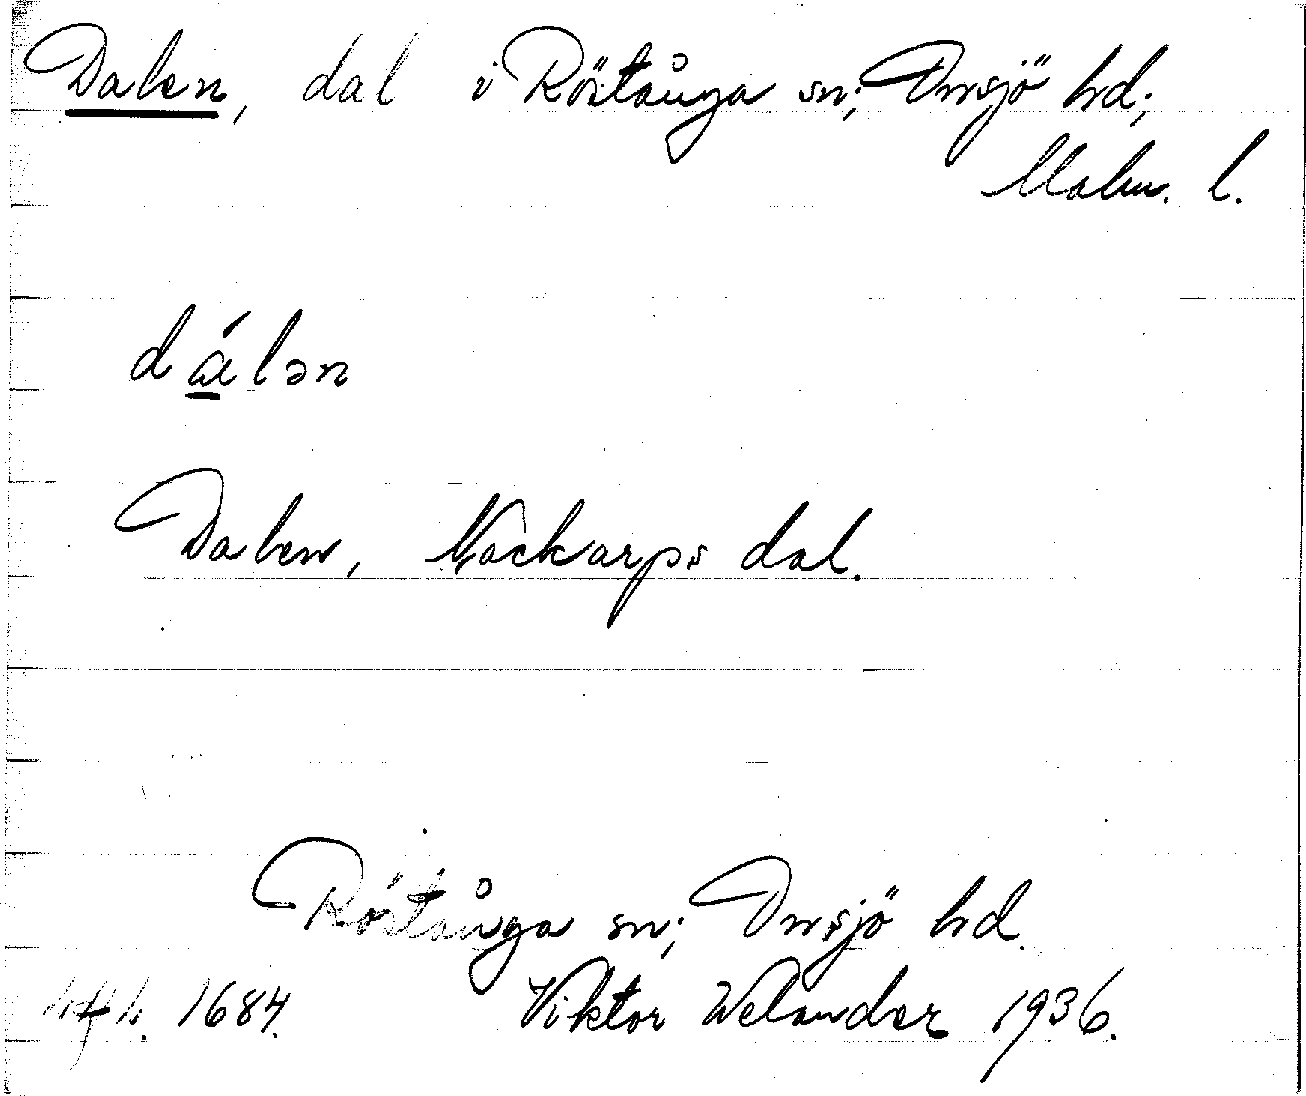 Dalen, dal i Röstånga sn; Onsjö hd;
Malm. l.
dálən
Dalen, Nackarps dal.
Röstånga sn; Onsjö hd.
1684.
Viktor Welander 1936.